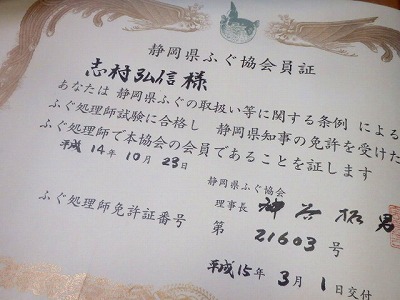 静岡県ふぐ協会員証
志村弘信様
あなたは 静岡県ふぐの取扱い等に関する条例 による
ふぐ処理師試験に合格し 静岡県知事の免許を受けた
ふぐ処理師で本協会の会員であることを証します
平成14年10月23日
静岡県ふぐ協会
理事長 神谷拓男
ふぐ処理師免許証番号
第 21603 号
平成15年3月1日交付